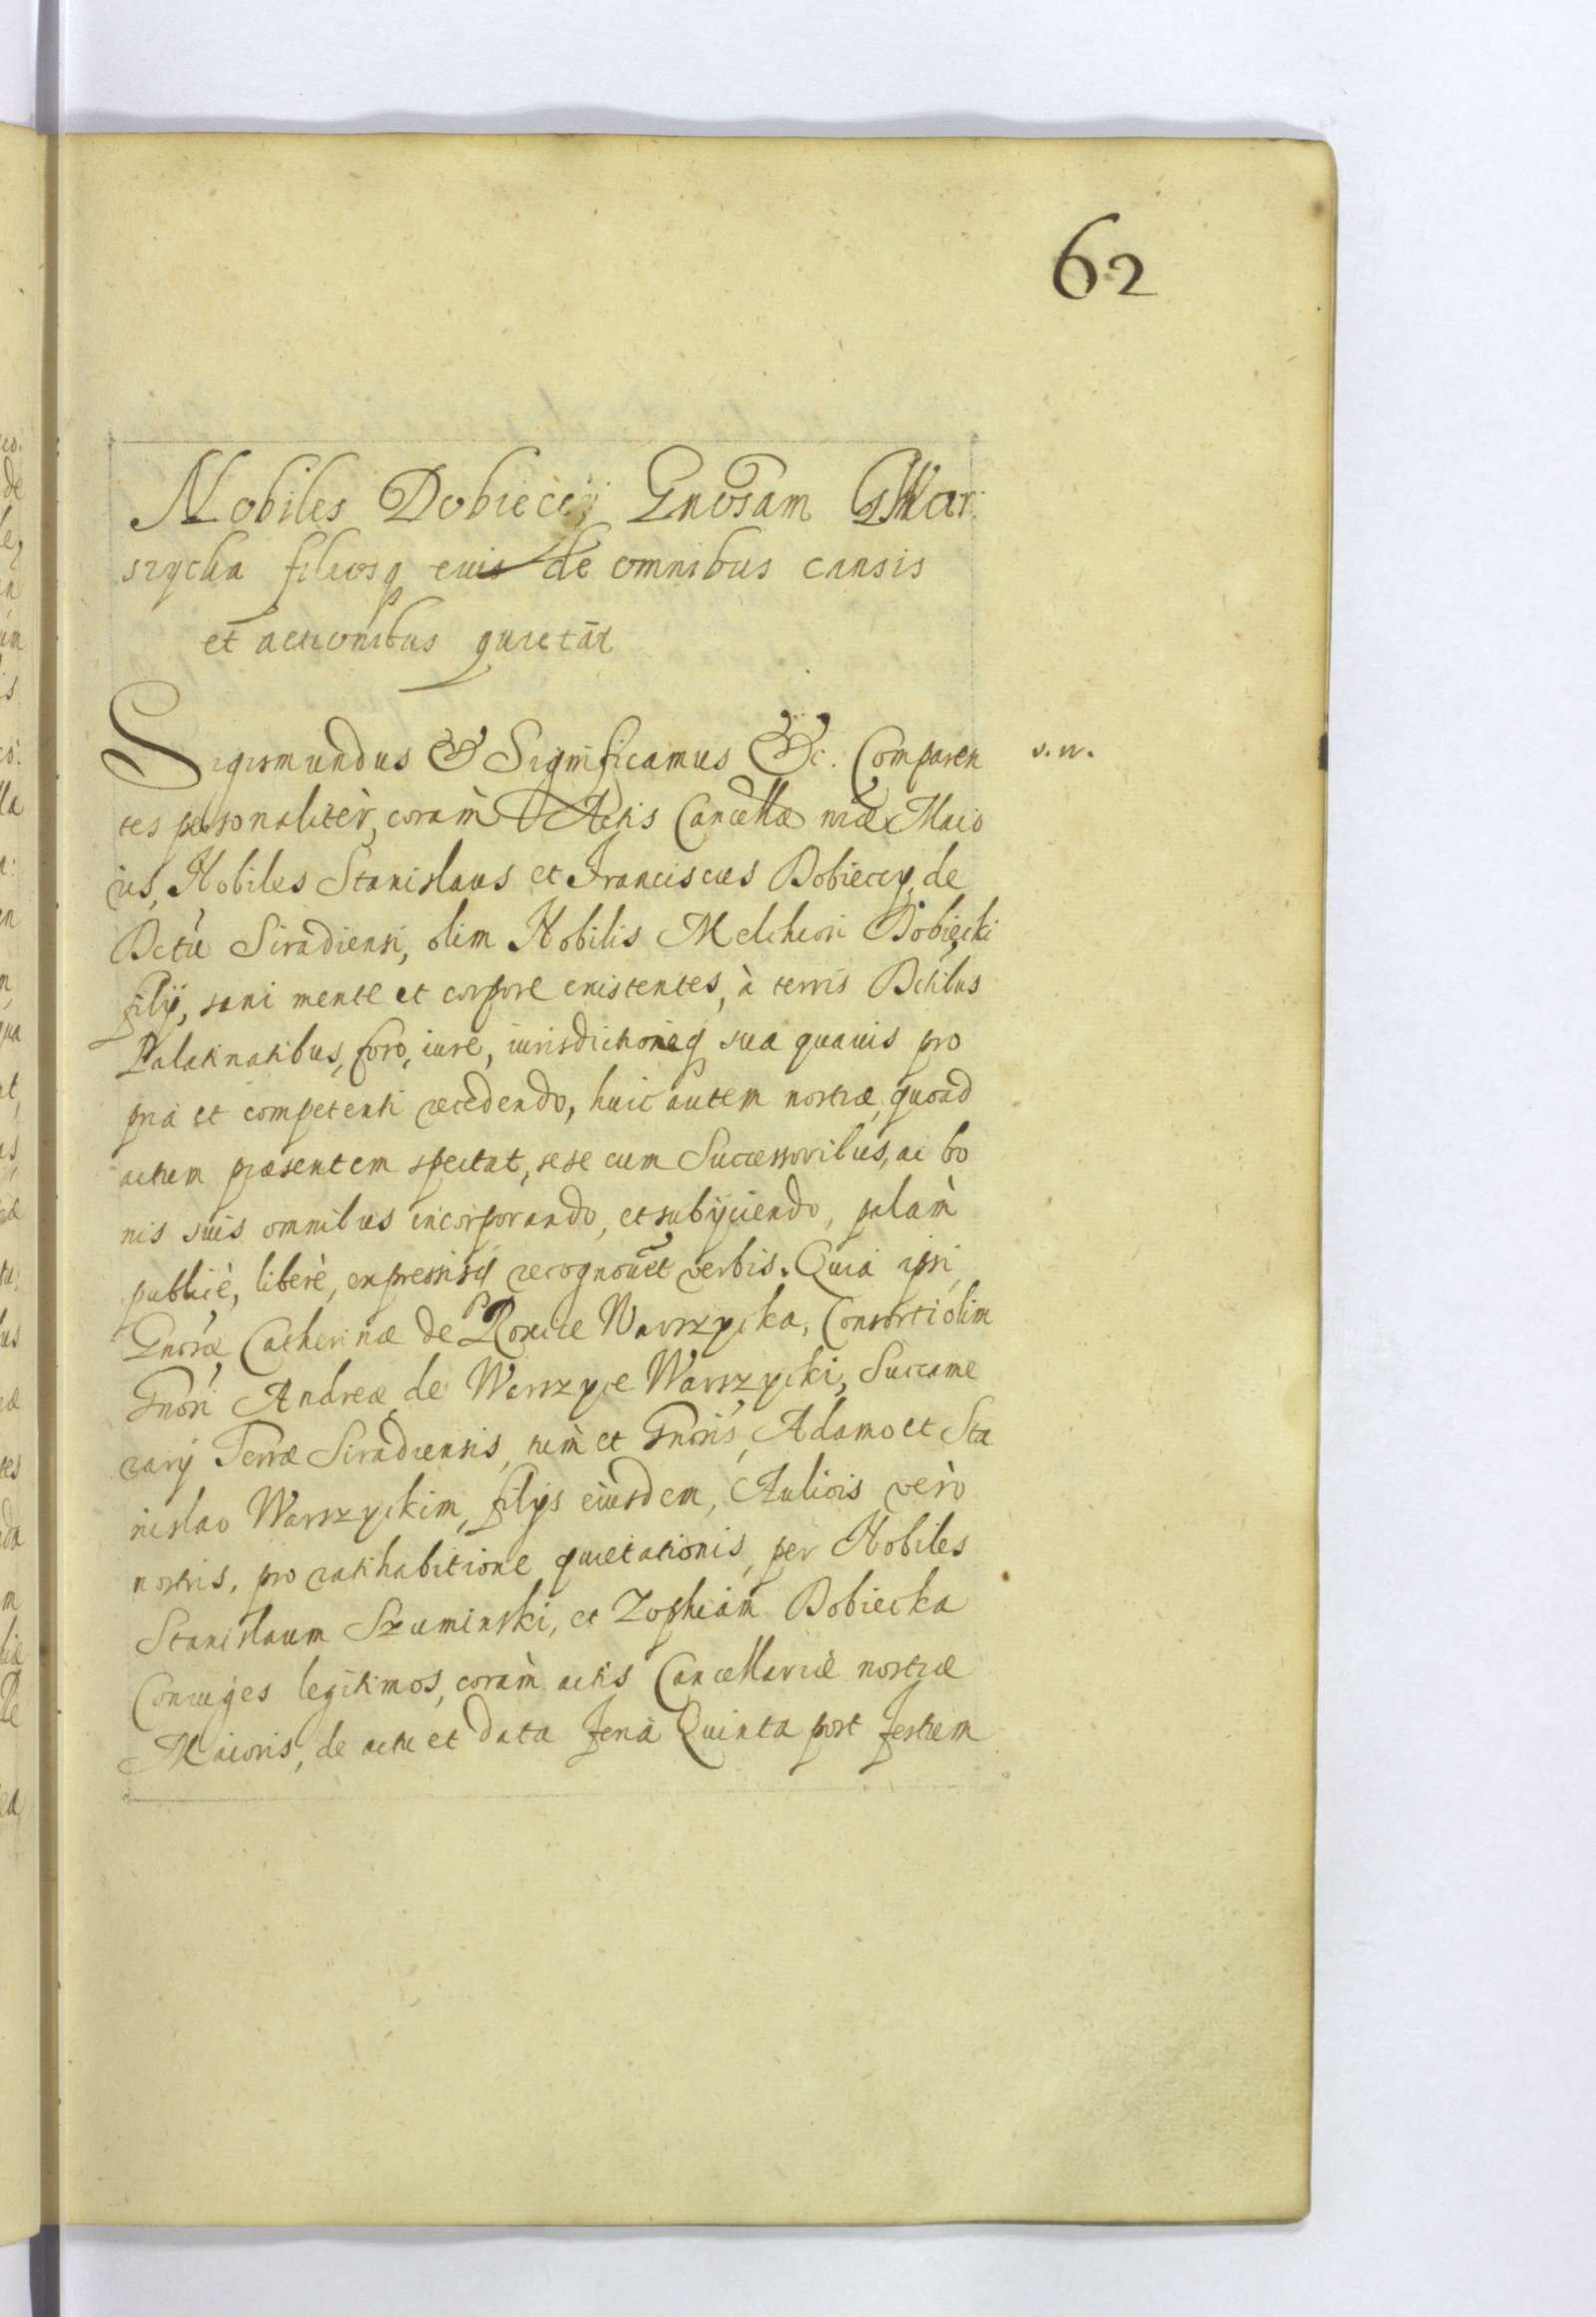 62
Nobiles Dobieccÿ Gnosam War:
szycka filiosq eius de omnibus causis
et actionibus quietāt
Sigismundus & Significamus &c. Comparen s. n.
tes personalitèr, coràm Actis Cancellæ nræ Maio
ris, Nobiles Stanislaus et Franciscus Dobieccy, de
Pctu Siradiensi, olim Nobilis Melchiori Dobięcki
filÿ, sani mente et corpore existentes, à terris Dctibus
Palatinatibus, foro, iure, iurisdictioneq sua quauis pro
pria et competenti recedendo, huic autem nostræ, quoad
actum præsentem spectat, sese cum Successoribus, ac bo
nis suis omnibus incorporando, et subÿciendo, palàm
publicè, liberè, expressisq recognouēt verbis. Quia ipsi
Gnosæ Catherinæ de Warszycka, Consorti olim
Gnosi Andreæ de Warszyce Warszycki, Succame
rarÿ Terræ Siradiensis, tùm et Gnosis, Adamo et Sta
nislao Warszyckim, filÿs eiusdem, Aulicis verò
nostris, pro ratihabitione quietationis, per Nobiles
Stanislaum Szuminski, et Zophiam Dobiecka
Coniuges legitimos, coràm actis Cancellariæ nostræ
Maioris, de actu et data Feria Quinta post festum